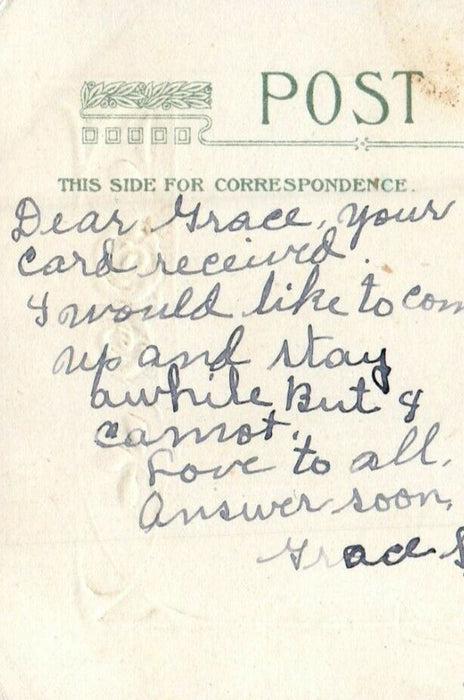 POST
THIS SIDE FOR CORRESPONDENCE.
Dear Grace, your
card received.
I would like to com
up and stay
awhile But I
cannot.
Love to all,
Answer soon,
Grace S